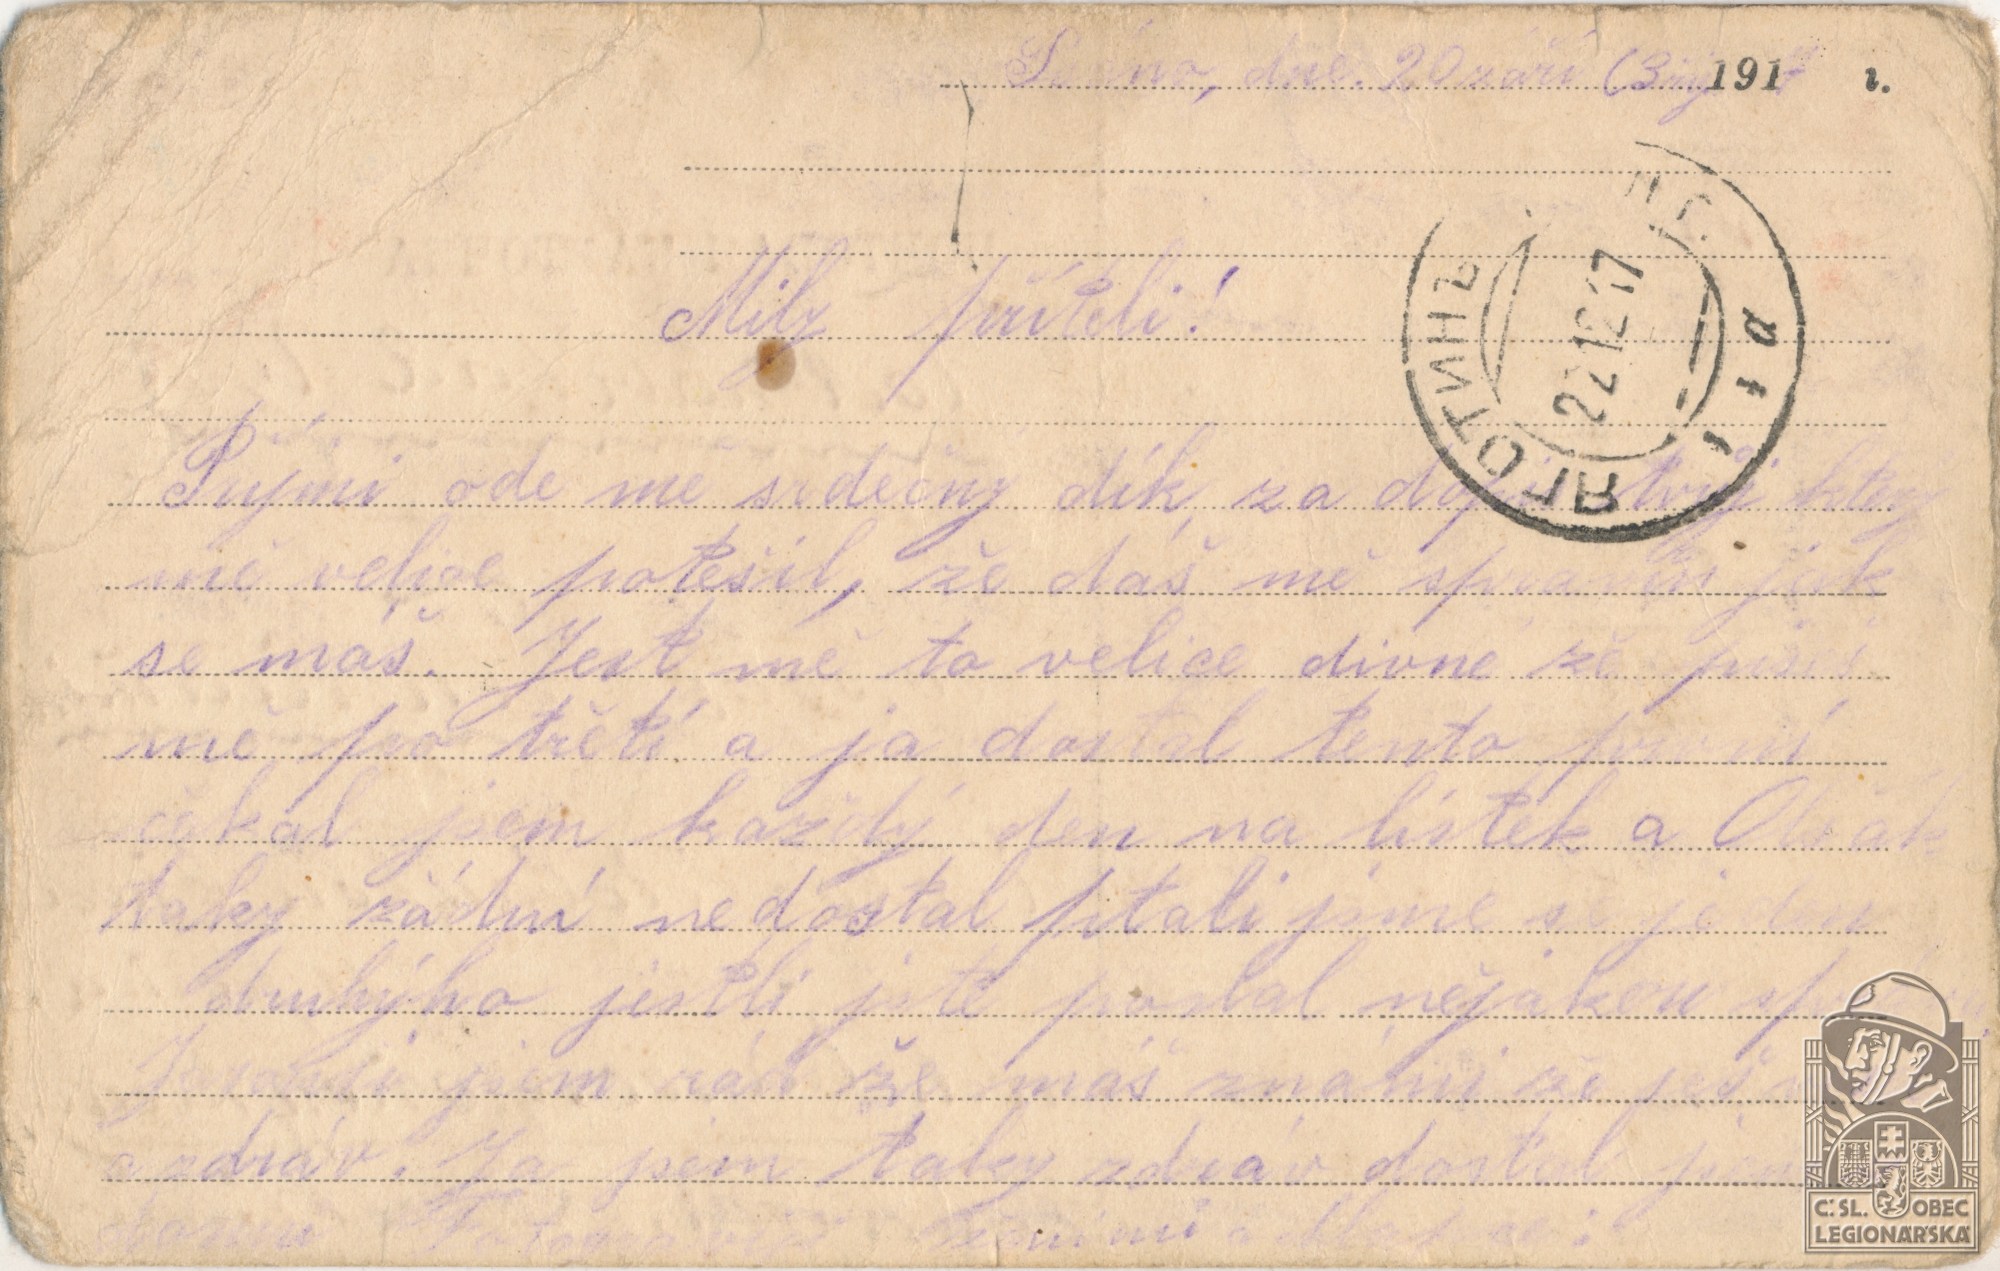 dne. 20 září (3 191 г.
Milý příteli!
ЯГОТИНЪ ПОЛ. 22 12 17 1 1 а
Přijmi ode mě srdečný dík za dopis tvůj který
mě velice potešil, že dáš mě spravu jak
se máš. Jest mě to velice divné že píšeš
mě po třetí a ja dostal tento první
čekal jsem každý den na lístek a
taky žádní nedostal ptali jsme se jeden
druhýho jestli jste poslal nějakou
jsem rád že máš známí že jsi
a zdráv. Ja jsem taky zdráv dostal jsem
Č.SL. OBEC
LEGIONÁŘSKÁ